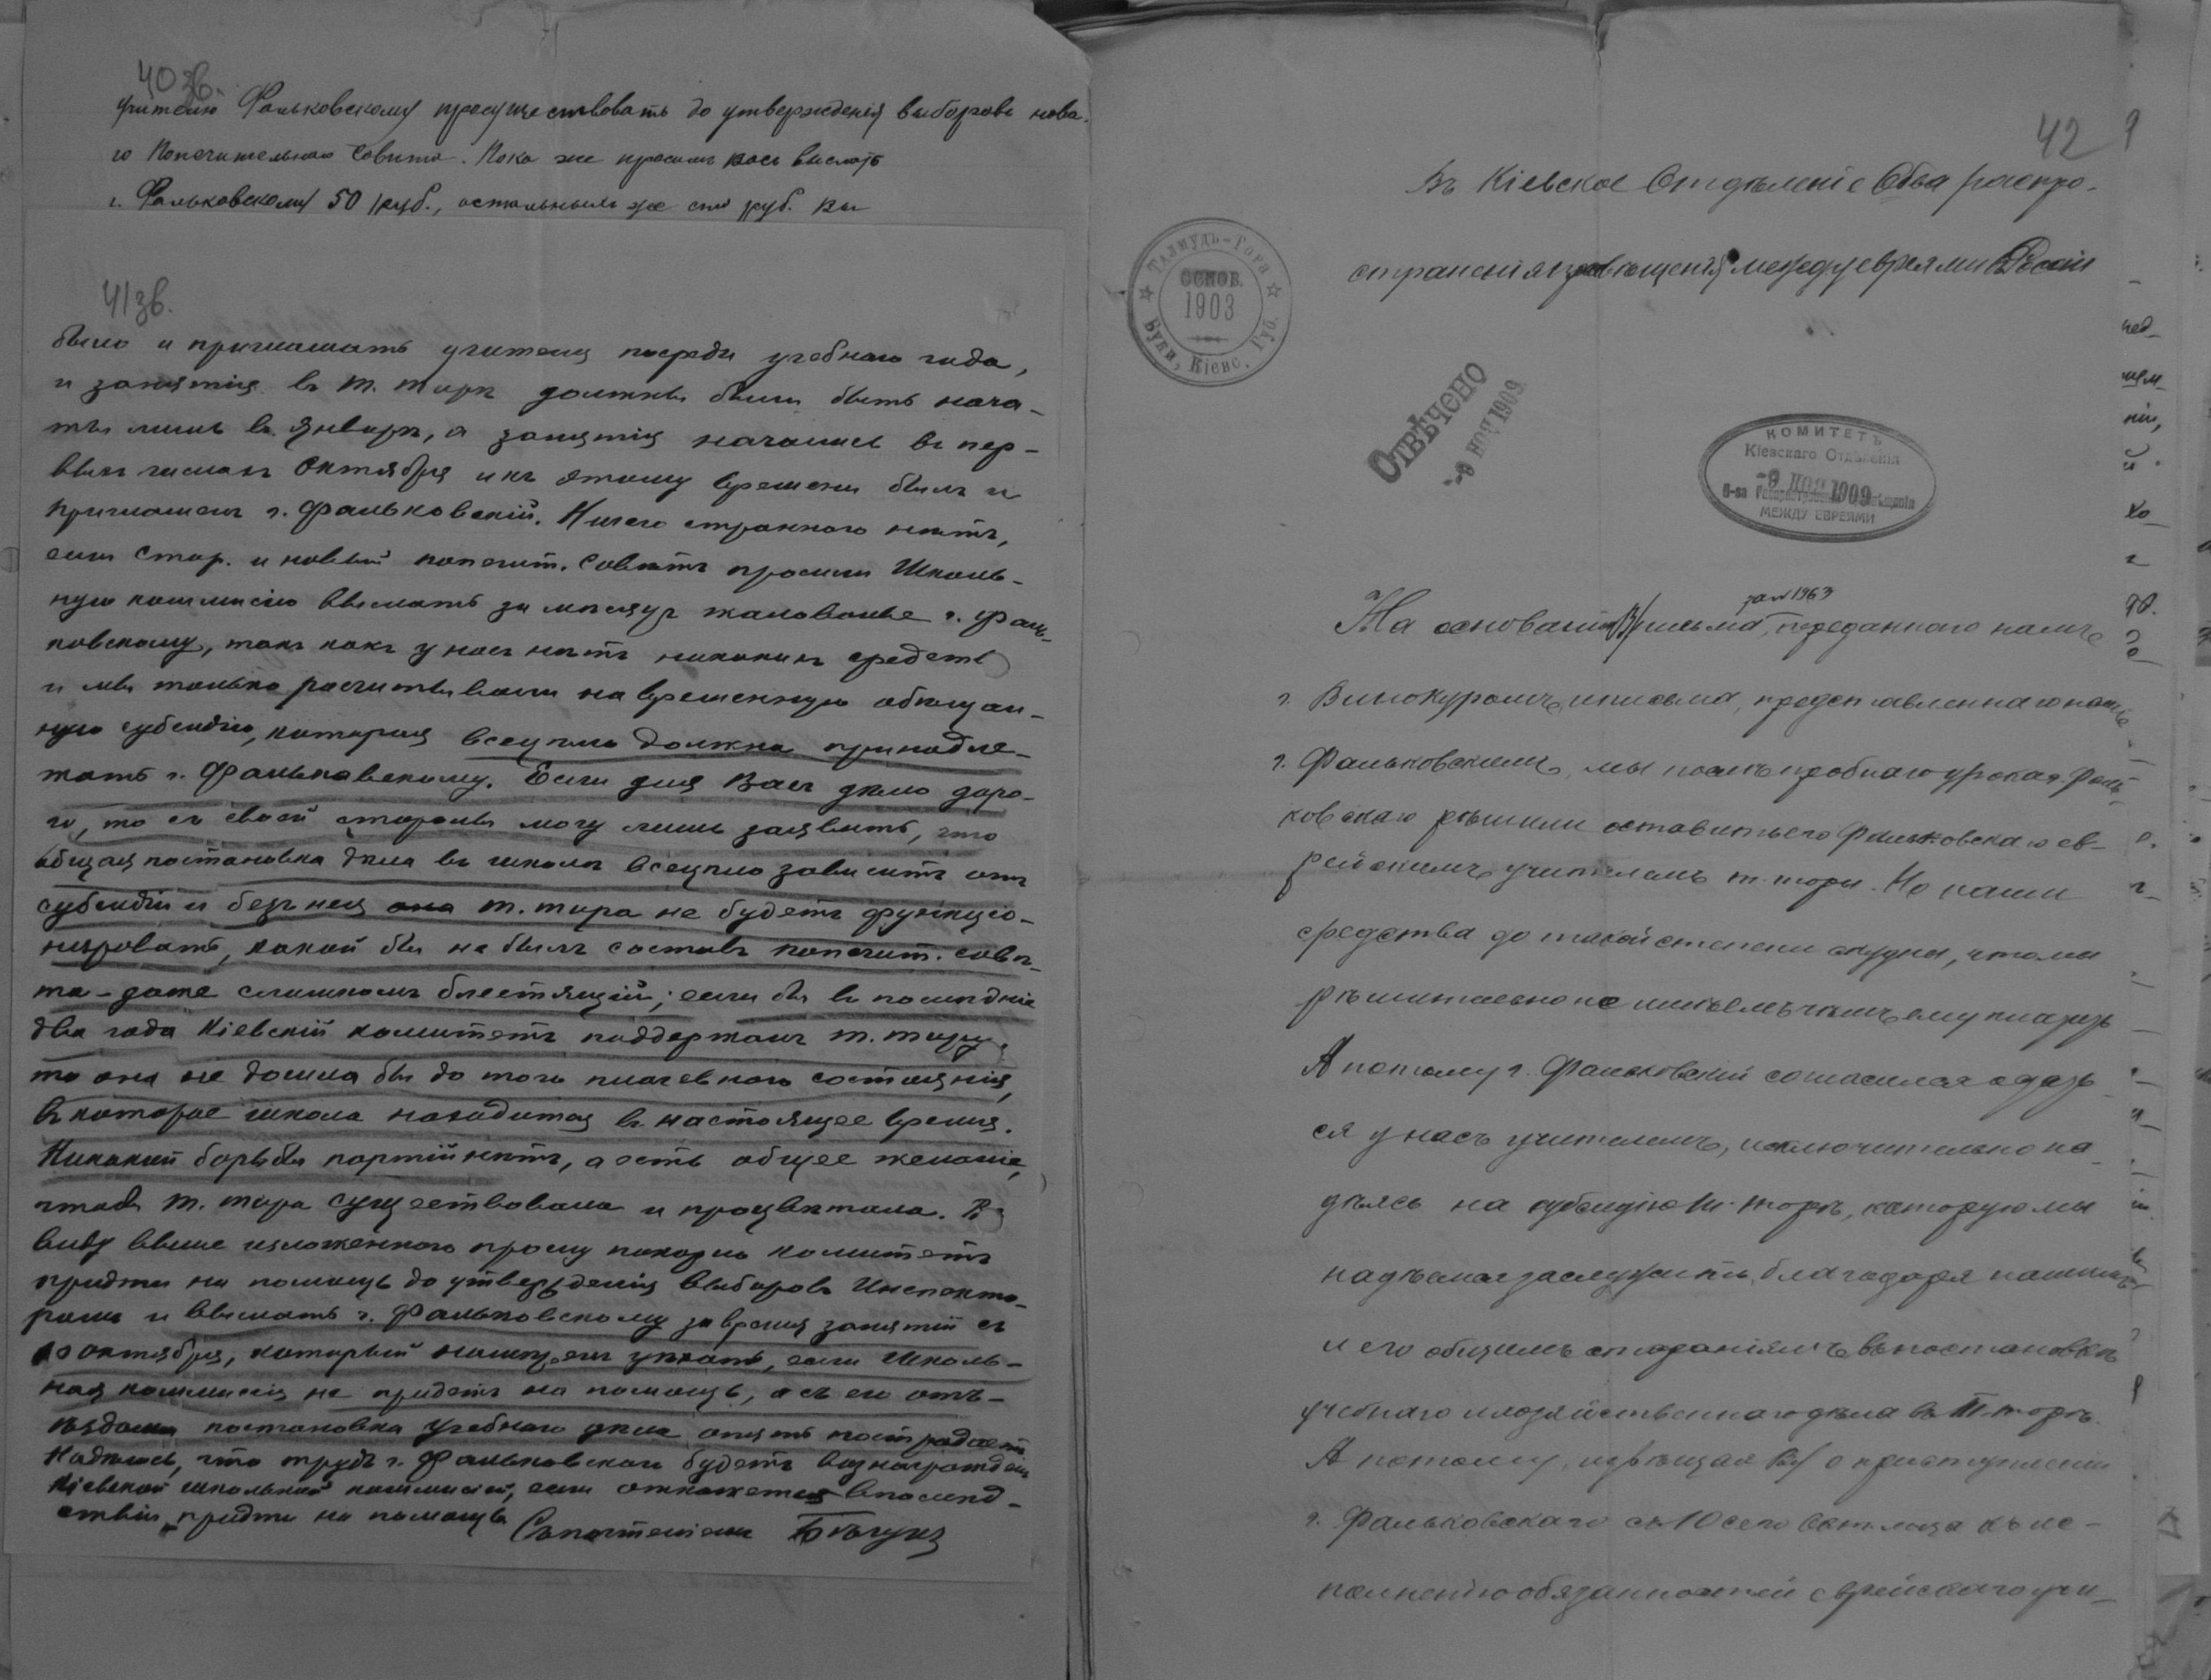 40 зв.
учителю Фальковскому просуществовать до утвержденія выборовъ нова-
го Попечительнаго Совѣта. Пока же просимъ васъ выслать
г. Фальковскому 50 руб., остальныя же сто руб. вы
41 зв.
было и приглашать учителя посреди учебнаго года,
и занятія въ т. торѣ должны были быть нача-
ты лишь въ январѣ, а занятія начались въ пер-
выхъ числахъ Октября и къ этому времени былъ и
приглашенъ г. Фальковскій. Ничего страннаго нѣтъ,
если стар. и новый попечит. совѣтъ просили Школь-
ную коммисію выслать за мѣсяцъ жалованье г. Фаль-
ковскому, такъ какъ у насъ нѣтъ никакихъ средствъ
и мы только расчитывали на временную обѣщан-
ную субсидію, которая всецѣло должна принадле-
жать г. Фальковскому. Если для Васъ дѣло доро-
го, то съ своей стороны могу лишь заявить, что
общая постановка дѣла въ школѣ всецѣло зависитъ отъ
субсидіи и безъ нея т. тора не будетъ функціо-
нировать, какой бы не былъ составъ попечит. совѣ-
та - даже слишкомъ блестящій; если бы въ послѣдніе
два года Кіевскій комитетъ поддержалъ т. тору,
то она не дошла бы до того плачевнаго состоянія,
въ которое школа находится въ настоящее время.
Никакой борьбы партій нѣтъ, а есть общее желаніе,
чтобы т. тора существовала и процвѣтала. Въ
виду выше изложеннаго прошу покорно комитетъ
придти на помощь до утвержденія выборовъ Инспекто-
ромъ и выслать г. Фальковскому за время занятій съ
10 октября, который намѣренъ уѣхать, если Школь-
ная коммисія не придетъ на помощь, а съ его отъ-
ѣздомъ постановка учебнаго дѣла опять пострадаетъ
Надѣюсь, что трудъ г. Фальковскаго будетъ вознагражденъ
Кіевской школьной коммисіей, если откажется впослѣд-
ствіи придти на помощь Съ почтеніемъ
42
Въ Кіевское Отдѣленіе Об-ва распро-
страненія просвѣщенія между евреями въ Россіи
Талмудъ-Тора
ОСНОВ.
1903
Буки, Кіевс. Губ.
ОТВѢЧЕНО
-8 НОЯ 1909
КОМИТЕТЪ
Кіевскаго Отдѣленія
-8 НОЯ 1909
О-ва Распростран. Просвѣщенія
МЕЖДУ ЕВРЕЯМИ
за № 1963
На основаніи В/письма, переданнаго намъ
г. Винокуромъ, и письма, представленнаго намъ
г. Фальковскимъ, мы послѣ пробнаго урока г. Фаль-
ковскаго рѣшили оставить его Фальковскаго ев-
рейскимъ учителемъ т. торы. Но наши
средства до такой степени скудны, что мы
рѣшительно не имѣемъ чѣмъ ему платить
А потому г. Фальковскій согласился остать-
ся у насъ учителемъ, исключительно на-
дѣясь на субсидію т. торѣ, которую мы
надѣемся заслужить, благодаря нашимъ
и его общимъ стараніямъ въ постановкѣ
учебнаго и хозяйственнаго дѣла въ Т. торѣ.
А потому, извѣщая Вы о приступленіи
г. Фальковскаго съ 10 сего Окт. мѣсяца къ ис-
полненію обязанностей еврейскаго учи-